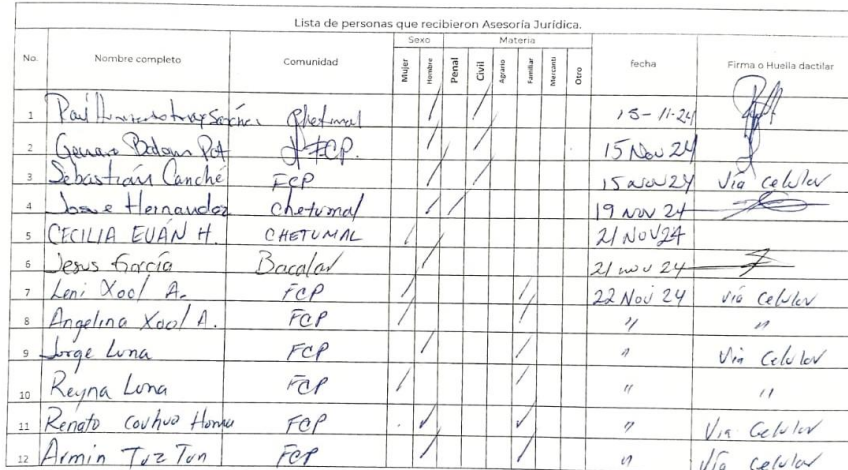 Lista de personas que recibieron Asesoría Jurídica.
Sexo Materia
No. Nombre completo Comunidad Mujer Hombre Penal Civil Agrario Familiar Mercanti Otro fecha Firma o Huella dactilar
1 Raul Chetumal / / 15-11-24
2 Genaro Balam Pot FCP. / / 15 Nov 24
3 Sebastian Canché FCP / / 15 nov 24 Vía celular
4 Jose Hernandez Chetumal / / 19 nov 24
5 CECILIA EUÁN H. CHETUMAL / 21 NOV 24
6 Jesus García Bacalar / 21 nov 24
7 Leni Xool A. FCP / / 22 Nov 24 vía Celular
8 Angelina Xool A. FCP / / " "
9 Jorge Luna FCP / / " Via Celular
10 Reyna Luna FCP / / " "
11 Renato FCP ✓ ✓ " Via Celular
12 Armin Tuz Tun FCP / / " Vía celular